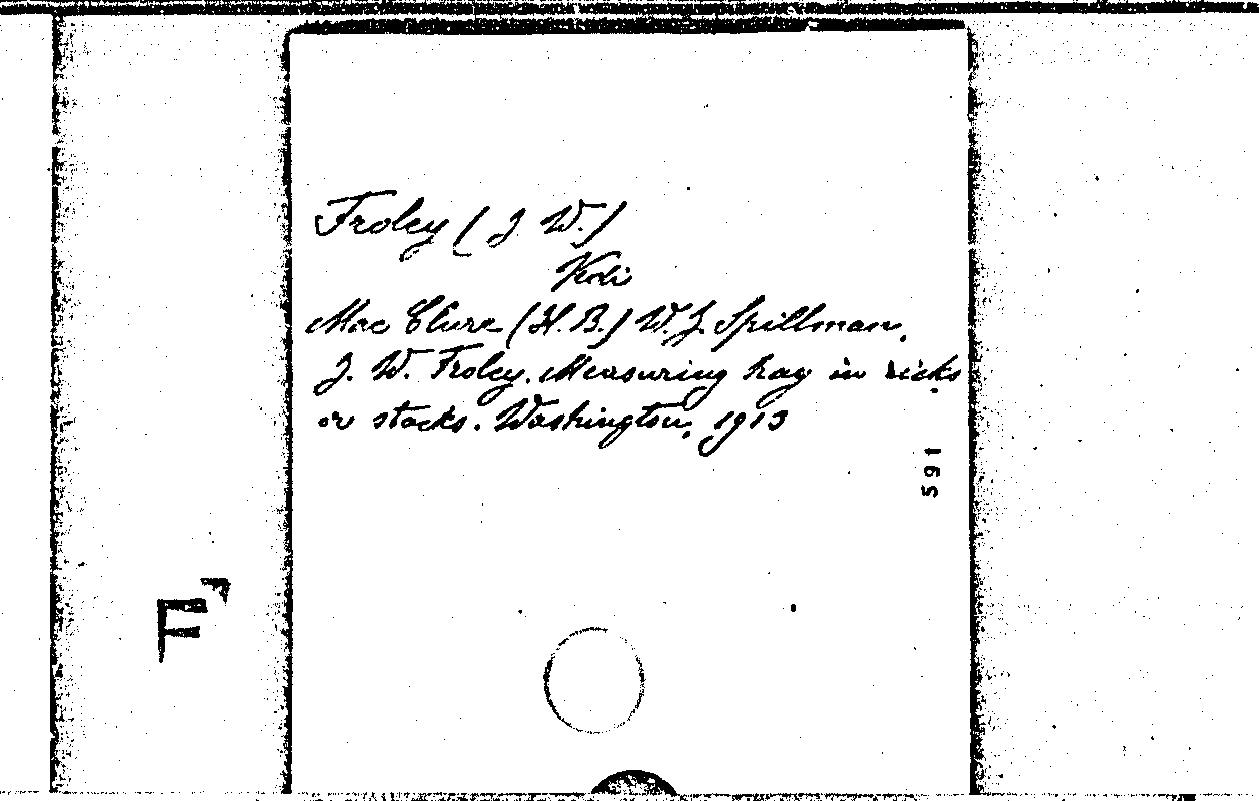 Froley (J. W.)
Vedi
Mac Clure (H. B.) W. J. Spillman,
J. W. Froley. Measuring hay in ricks
or stacks. Washington, 1913
591
F